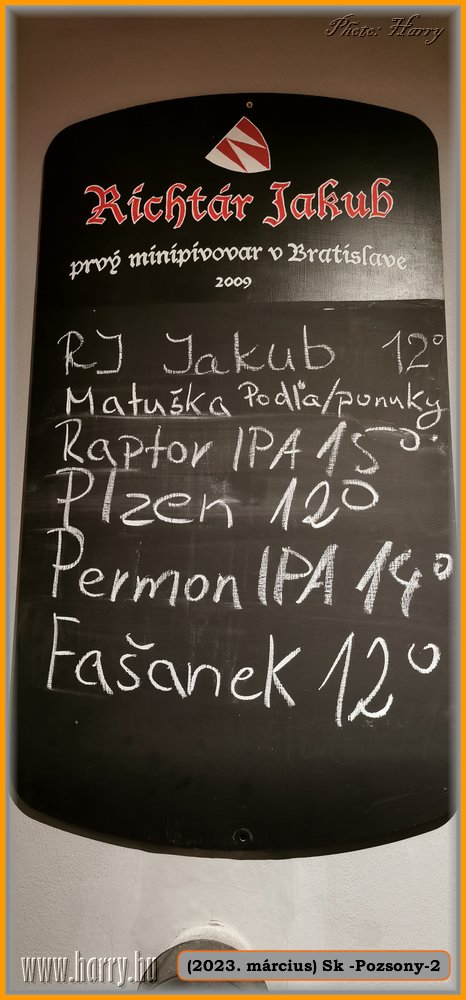 Photo: Harry
Richtár Jakub
prvý minipivovar v Bratislave
2009
RJ Jakub 12°
Matuška Podľa/ponuky
Raptor IPA 15°
Plzen 12°
Permon IPA 14°
Fašanek 12°
www.harry.hu
(2023. március) Sk -Pozsony-2